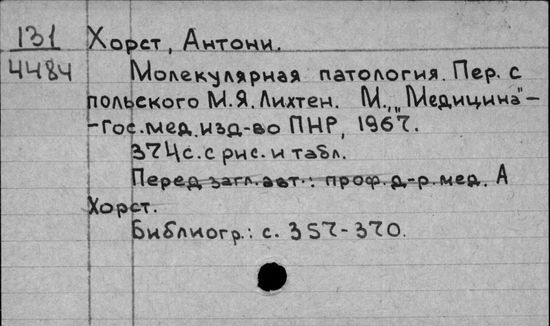 131 Хорст, Антони.
4484 Молекулярная патология. Пер. с
польского М.Я. Лихтен. М., „Медицина"-
-Гос. мед. изд-во ПНР, 1967.
374с. с рис. и табл.
Перед загл. авт.: проф. д-р. мед. А
Хорст.
Библиогр.: с. 357-370.